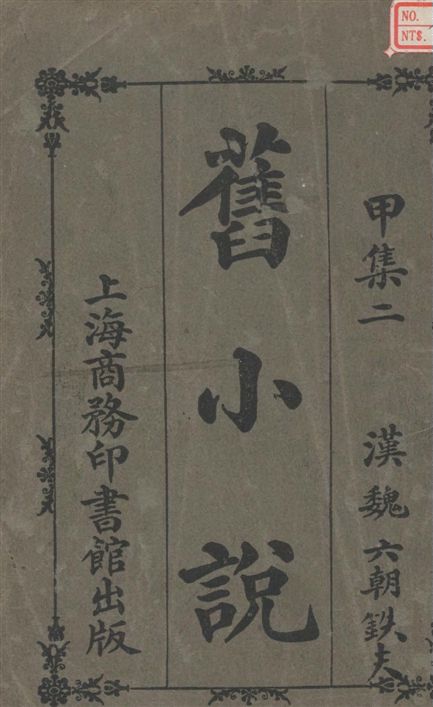 甲集二 漢魏六朝鉄夫
舊小說
上海商務印書館出版
NO.
NT$.